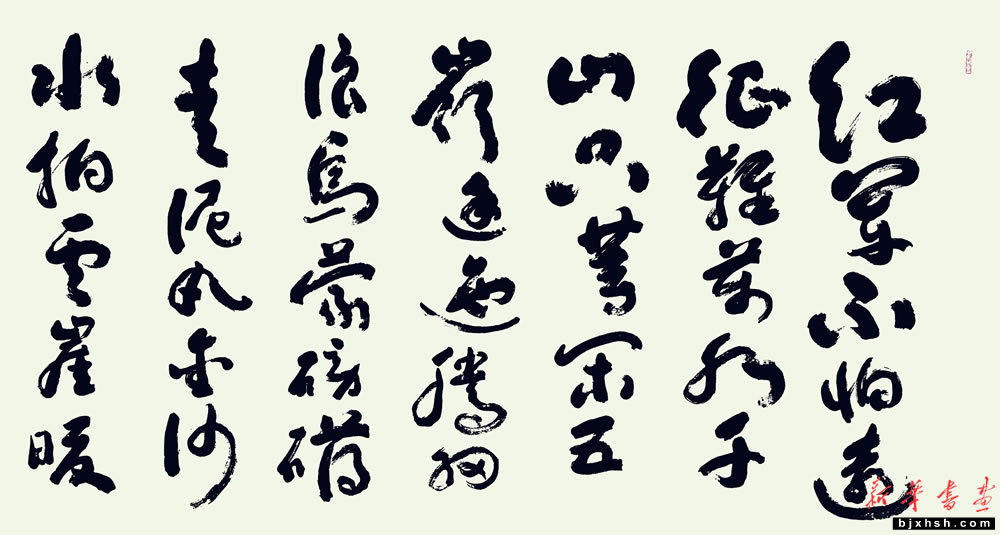 红军不怕远
征难万水千
山只等闲五
岭逶迤腾细
浪乌蒙磅礴
走泥丸金沙
水拍云崖暖
新华书画
bjxhsh.com